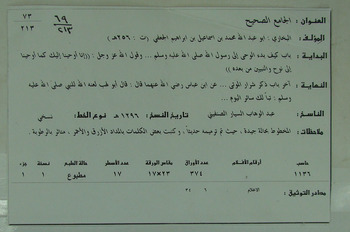 ٧٣ ٦٩
٢١٣ ٢١٣
العنوان: الجامع الصحيح
المؤلف: البخاري؛ ابو عبد الله محمد بن اسماعيل بن ابراهيم الجعفي (ت: ٢٥٦هـ)
البداية: باب كيف بدء الوحي إلى رسول الله صلى الله عليه وسلم ... وقول الله عز وجل: ((إنا أوحينا إليك كما أوحينا
إلى نوح والنبيين من بعده))
النهاية: آخر باب ذكر شرار الموتى ... عن ابن عباس رضي الله عنهما قال: قال أبو لهب لعنه الله للنبي صلى الله عليه
وسلم: تبا لك سائر اليوم ...
الناسخ: عبد الوهاب السيار تاريخ النسخ: ١٢٩٦هـ نوع الخط: نسخي
ملاحظات: المخطوط بحالة جيدة، حيث تم ترميمه حديثا، وكتبت بعض الكلمات بالمداد الأزرق والأحمر، متأثر بالرطوبة.
خاص أرقام الأفلام عدد الأوراق مقاس الورقة عدد الأسطر حالة الطبع نسخة جزء
١١٣٦ ٣٧٤ ٢٣×١٧ ١٧ مطبوع ١ ١
مصادر التوثيق: الاعلام ١ ٣٤